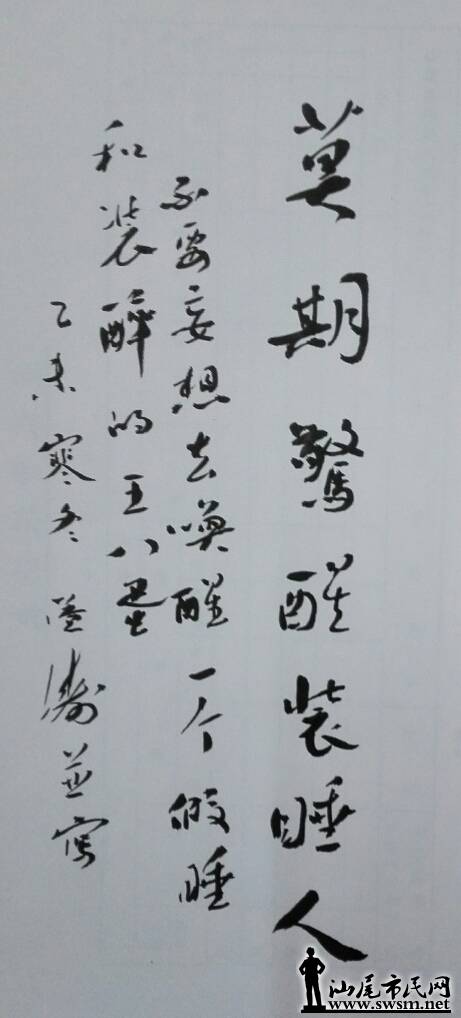 莫期驚醒装睡人
不要妄想去唤醒一个假睡
和装醉的王八蛋
乙未寒冬 並写
汕尾市民网
www.swsm.net